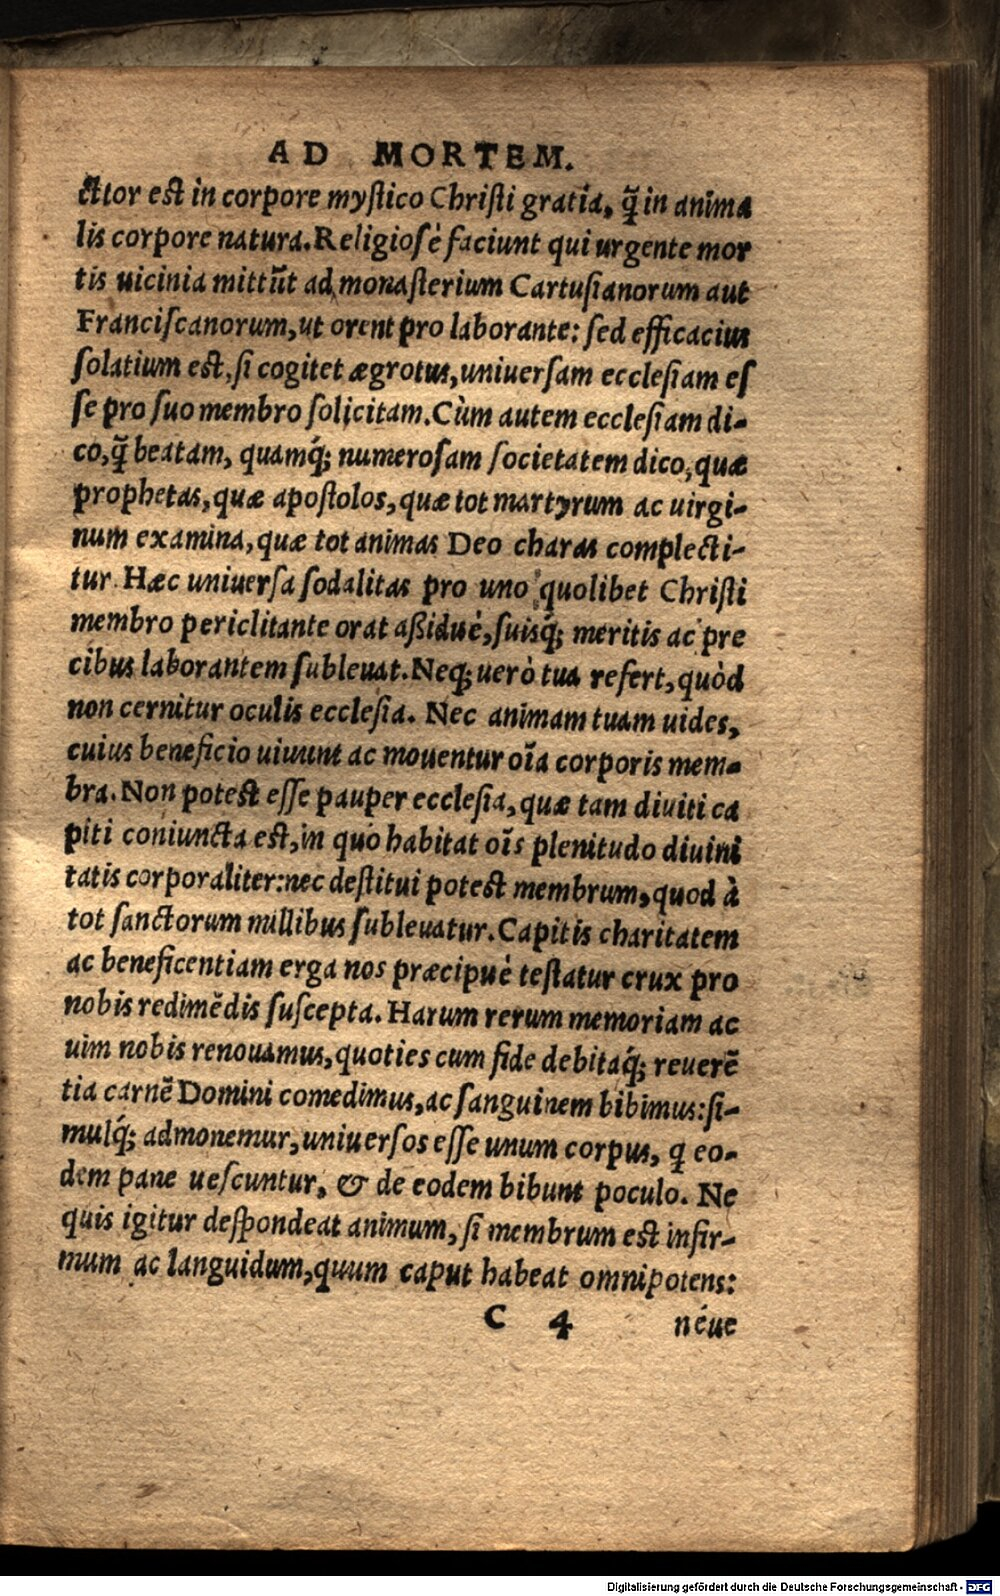 AD MORTEM.
ctior est in corpore mystico Christi gratia, q̃ in anima
lis corpore natura. Religiosè faciunt qui urgente mor
tis uicinia mittũt ad monasterium Cartusianorum aut
Franciscanorum, ut orent pro laborante: sed efficacius
solatium est, si cogitet ægrotus, uniuersam ecclesiam es
se pro suo membro solicitam. Cùm autem ecclesiam di-
co, q̃ beatam, quamq́; numerosam societatem dico, quæ
prophetas, quæ apostolos, quæ tot martyrum ac uirgi-
num examina, quæ tot animas Deo charas complecti-
tur. Hæc uniuersa sodalitas pro uno quolibet Christi
membro periclitante orat aßiduè, suisq́; meritis ac pre
cibus laborantem subleuat. Neq; uerò tua refert, quòd
non cernitur oculis ecclesia. Nec animam tuam uides,
cuius beneficio uiuunt ac mouentur oĩa corporis mem-
bra. Non potest esse pauper ecclesia, quæ tam diuiti ca
piti coniuncta est, in quo habitat oĩs plenitudo diuini
tatis corporaliter: nec destitui potest membrum, quod à
tot sanctorum millibus subleuatur. Capitis charitatem
ac beneficentiam erga nos præcipuè testatur crux pro
nobis redimẽdis suscepta. Harum rerum memoriam ac
uim nobis renouamus, quoties cum fide debitaq́; reuerẽ
tia carnẽ Domini comedimus, ac sanguinem bibimus: si-
mulq́; admonemur, uniuersos esse unum corpus, q eo-
dem pane uescuntur, & de eodem bibunt poculo. Ne
quis igitur despondeat animum, si membrum est infir-
mum ac languidum, quum caput habeat omnipotens:
C 4 néue
Digitalisierung gefördert durch die Deutsche Forschungsgemeinschaft - DFG